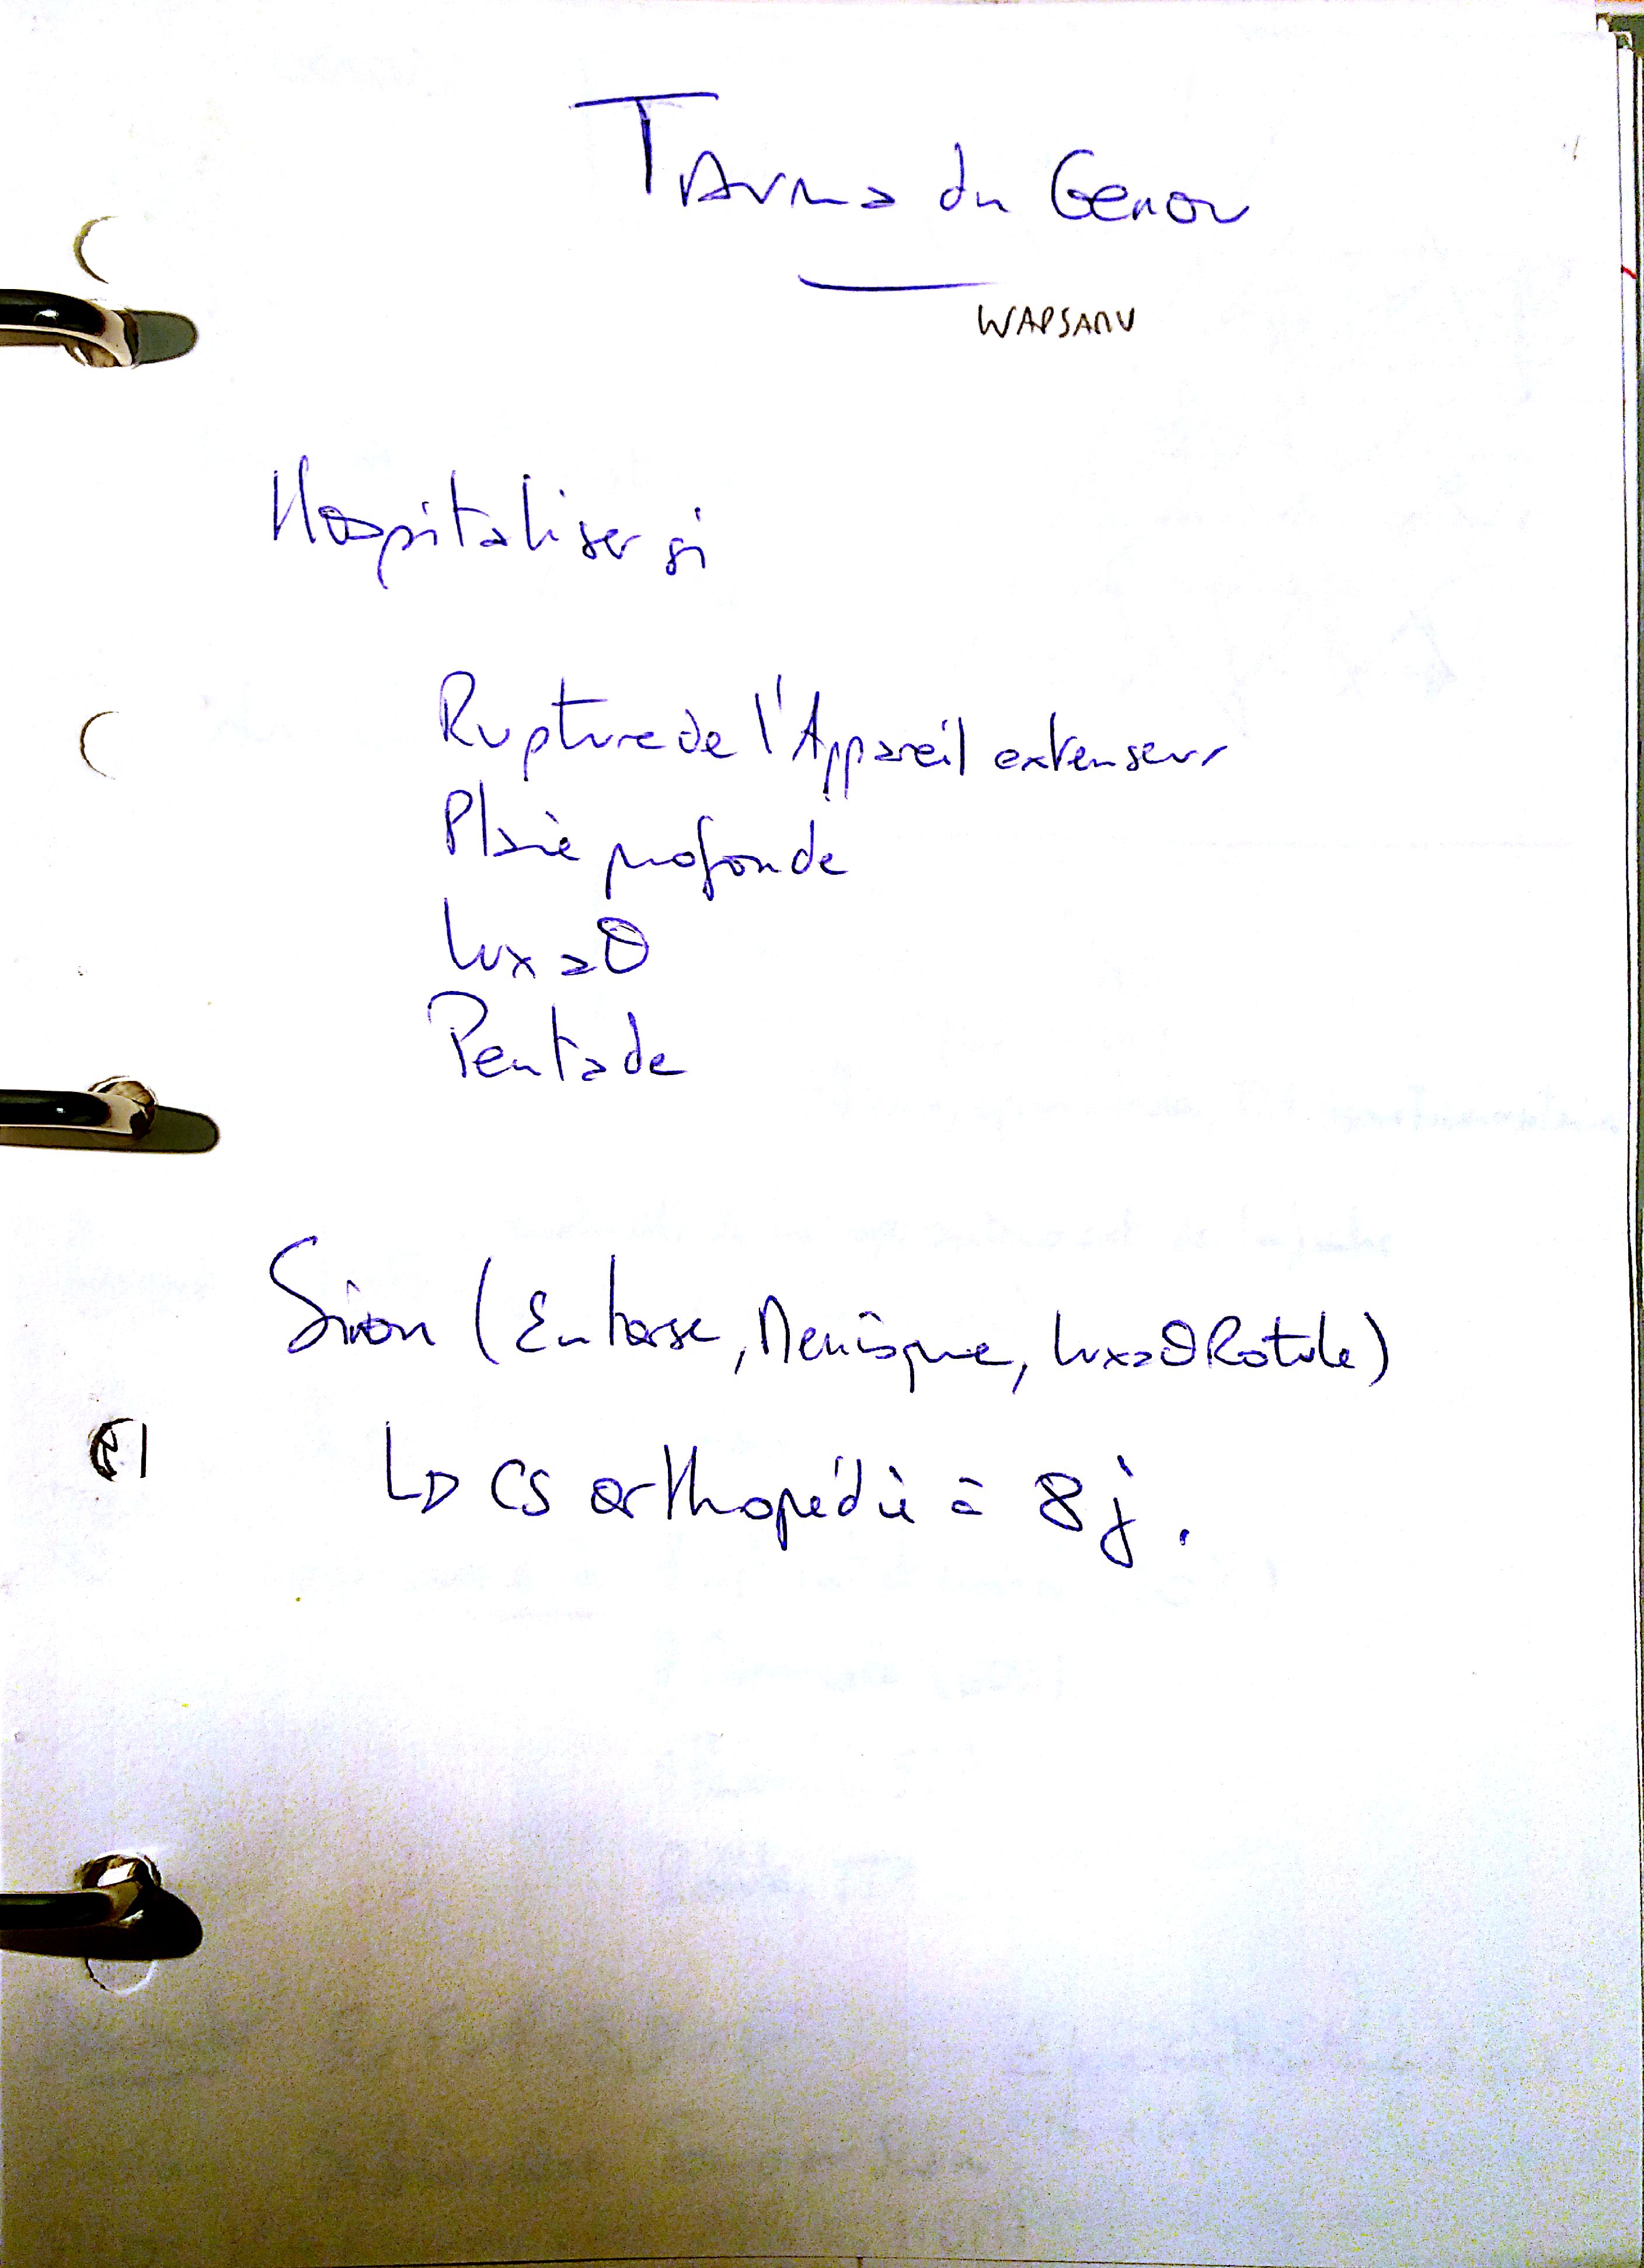 Trauma du Genou
WAPSANU
Hospitaliser si
Rupture de l'Appareil extenseur
Plaie profonde
Lux a θ
Pentade
Sinon (Entorse, Menisque, luxaθ Rotule)
↳ CS orthopédie à 8 j.